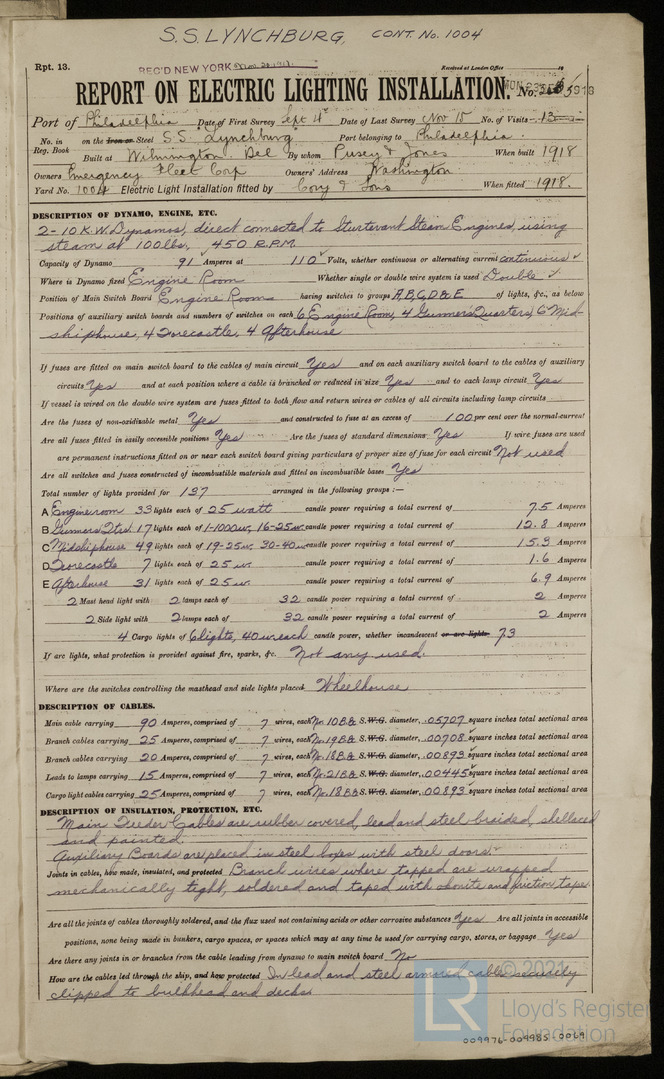 S.S. LYNCHBURG, CONT. No. 1004
Rpt. 13. REC'D NEW YORK Nov. 20 1918 Received at London Office 19
REPORT ON ELECTRIC LIGHTING INSTALLATION. No.
Port of Philadelphia Date of First Survey Sept 4th Date of Last Survey Nov 15 No. of Visits 13
No. in Reg. Book on the Iron or Steel S.S. "Lynchburg" Port belonging to Philadelphia
Built at Wilmington, Del By whom Pusey & Jones When built 1918
Owners Emergency Fleet Corp Owners' Address Washington
Yard No. 1004 Electric Light Installation fitted by Cory & Sons When fitted 1918.
DESCRIPTION OF DYNAMO, ENGINE, ETC.
2-10 K.W. Dynamos, direct connected to Sturtevant Steam Engines, using
steam at 100 lbs. 450 R.P.M.
Capacity of Dynamo 91 Amperes at 110 Volts, whether continuous or alternating current continuous
Where is Dynamo fixed Engine Room Whether single or double wire system is used Double
Position of Main Switch Board Engine Room having switches to groups A, B, C, D & E of lights, &c., as below
Positions of auxiliary switch boards and numbers of switches on each 6 Engine Room, 4 Gunners Quarters, 6 Mid-
shiphouse, 4 Forecastle, 4 Afterhouse
If fuses are fitted on main switch board to the cables of main circuit Yes and on each auxiliary switch board to the cables of auxiliary
circuits Yes and at each position where a cable is branched or reduced in size Yes and to each lamp circuit Yes
If vessel is wired on the double wire system are fuses fitted to both flow and return wires or cables of all circuits including lamp circuits
Are the fuses of non-oxidizable metal Yes and constructed to fuse at an excess of 100 per cent over the normal current
Are all fuses fitted in easily accessible positions Yes Are the fuses of standard dimensions Yes If wire fuses are used
are permanent instructions fitted on or near each switch board giving particulars of proper size of fuse for each circuit Not used
Are all switches and fuses constructed of incombustible materials and fitted on incombustible bases Yes
Total number of lights provided for 137 arranged in the following groups :—
A Engineroom 33 lights each of 25 watt candle power requiring a total current of 7.5 Amperes
B Gunners Qtrs. 17 lights each of 1-1000w, 16-25w candle power requiring a total current of 12.8 Amperes
C Midshiphouse 49 lights each of 19-25w, 30-40w candle power requiring a total current of 15.3 Amperes
D Forecastle 7 lights each of 25w candle power requiring a total current of 1.6 Amperes
E Afterhouse 31 lights each of 25w candle power requiring a total current of 6.9 Amperes
2 Mast head light with 2 lamps each of 32 candle power requiring a total current of 2 Amperes
2 Side light with 2 lamps each of 32 candle power requiring a total current of 2 Amperes
4 Cargo lights of 6 lights, 40w each candle power, whether incandescent or arc lights 7.3
If arc lights, what protection is provided against fire, sparks, &c. Not any used.
Where are the switches controlling the masthead and side lights placed Wheelhouse
DESCRIPTION OF CABLES.
Main cable carrying 90 Amperes, comprised of 7 wires, each No. 10 B&S S.W.G. diameter, .05707 square inches total sectional area
Branch cables carrying 25 Amperes, comprised of 7 wires, each No. 19 B&S S.W.G. diameter, .00708 square inches total sectional area
Branch cables carrying 20 Amperes, comprised of 7 wires, each No. 18 B&S S.W.G. diameter, .00893 square inches total sectional area
Leads to lamps carrying 15 Amperes, comprised of 7 wires, each No. 21 B&S S.W.G. diameter, .00445 square inches total sectional area
Cargo light cables carrying 25 Amperes, comprised of 7 wires, each No. 18 B&S S.W.G. diameter, .00893 square inches total sectional area
DESCRIPTION OF INSULATION, PROTECTION, ETC.
Main Feeder Cables are rubber covered, lead and steel braided, shellaced
and painted.
Auxiliary Boards are placed in steel boxes with steel doors.
Joints in cables, how made, insulated, and protected Branch wires where tapped are wrapped
mechanically tight, soldered and taped with okonite and friction tape
Are all the joints of cables thoroughly soldered, and the flux used not containing acids or other corrosive substances Yes Are all joints in accessible
positions, none being made in bunkers, cargo spaces, or spaces which may at any time be used for carrying cargo, stores, or baggage Yes
Are there any joints in or branches from the cable leading from dynamo to main switch board No
How are the cables led through the ship, and how protected In lead and steel armored cables securely
clipped to bulkhead and decks
© 2021
LR Lloyd's Register
Foundation
009976-009985-0069